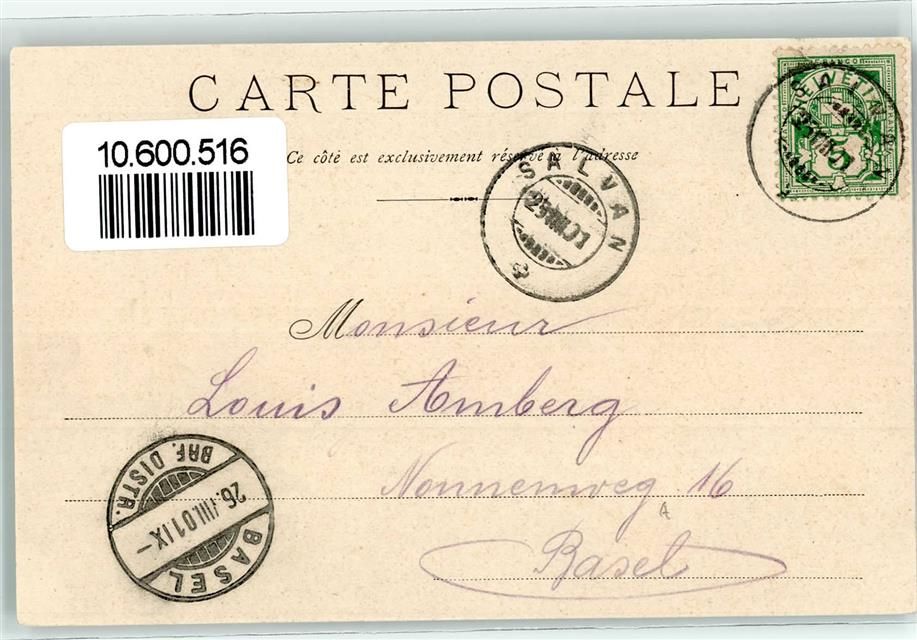 CARTE POSTALE
10.600.516
Ce côté est exclusivement réservé à l'adresse
HELVETIA
FRANCO
5
SALVAN
Monsieur
Louis Amberg
Nonnenweg 16
Basel
BRF. DISTR.
26.VIII.01.IX-
BASEL